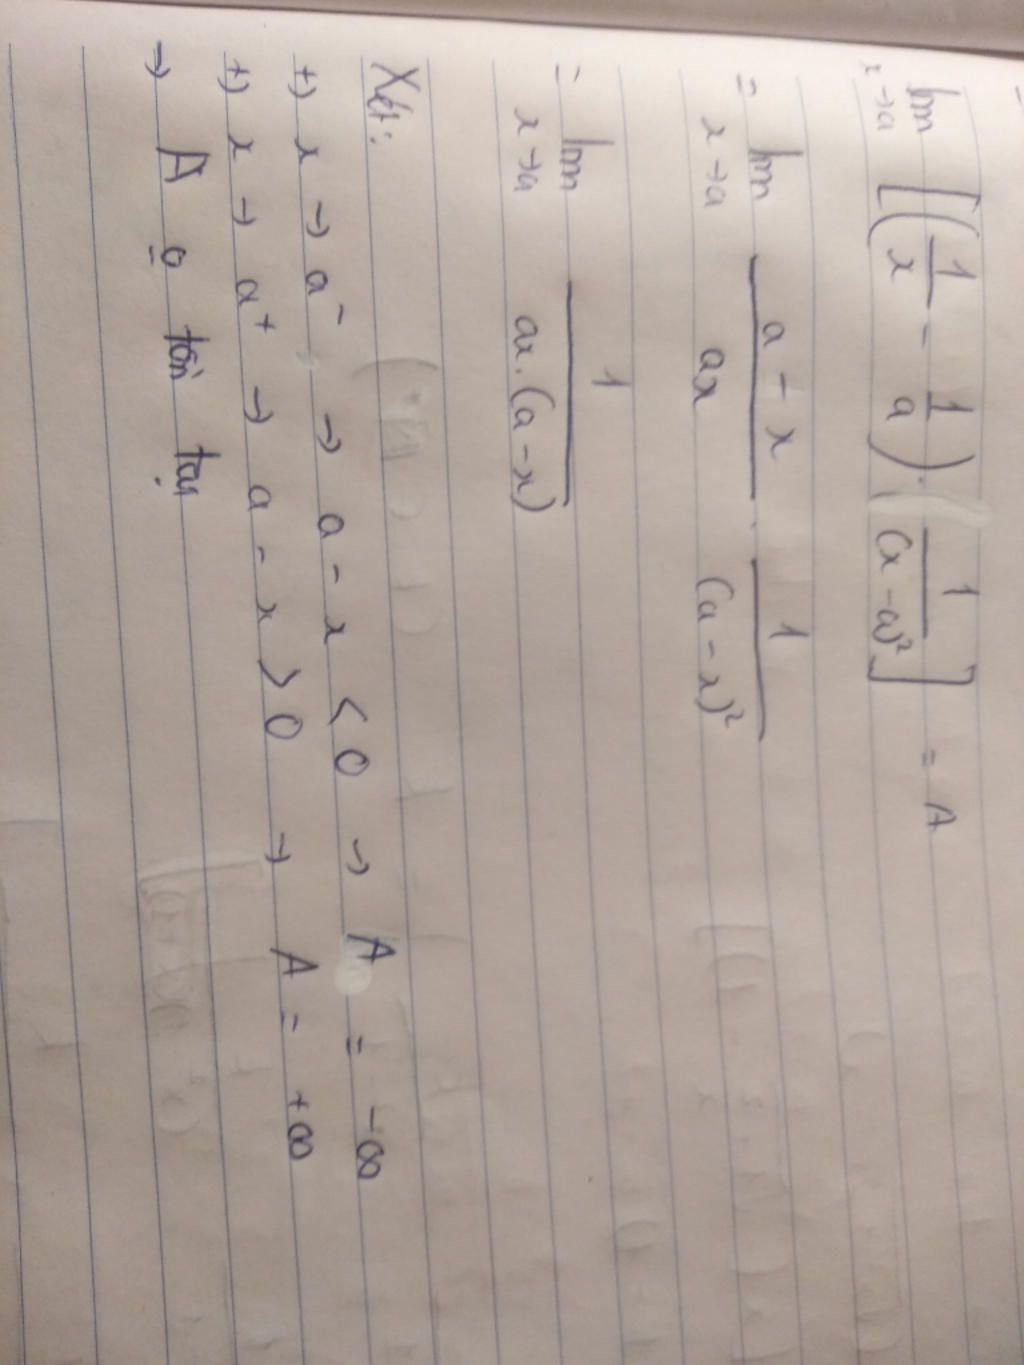 lim x→a [(1/x - 1/a) · 1/(x - a)²] = A
= lim x→a (a - x)/(ax) · 1/(a - x)²
= lim x→a 1/(ax.(a - x))
Xét:
+) x → a⁻ → a - x < 0 → A = -∞
+) x → a⁺ → a - x > 0 → A = +∞
→ A o̲ tồn tại